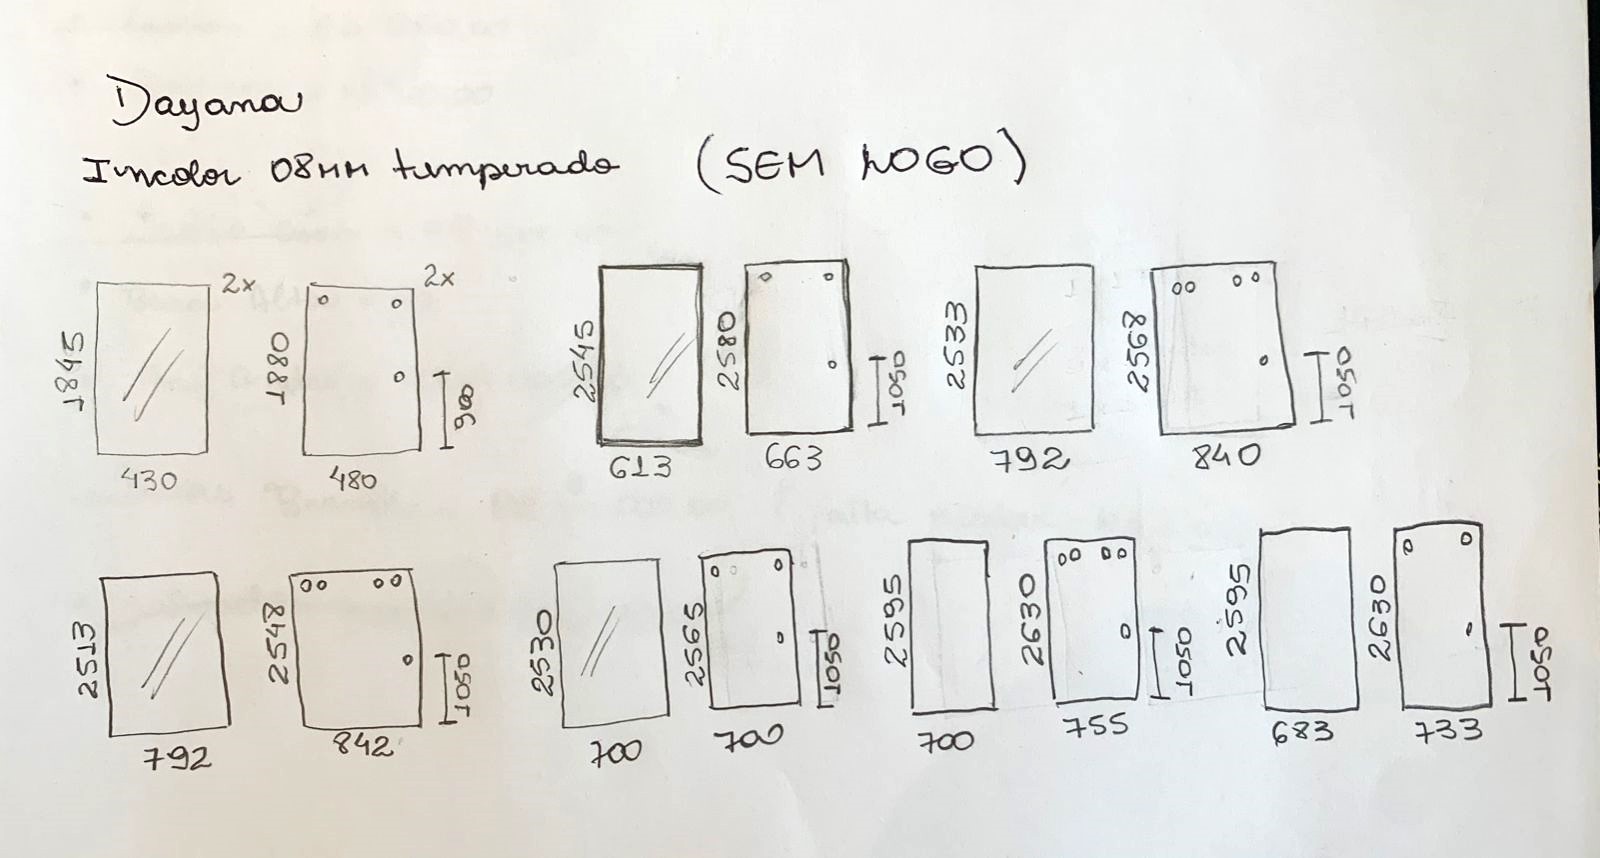 Dayana
Incolor 08MM temperado (SEM LOGO)
2x 2x
1845 1880 900 2545 2580 1050 2533 2568 1050
430 480 613 663 792 840
2513 2548 1050 2530 2565 1050 2595 2630 1050 2595 2630 1050
792 842 700 700 700 755 683 733